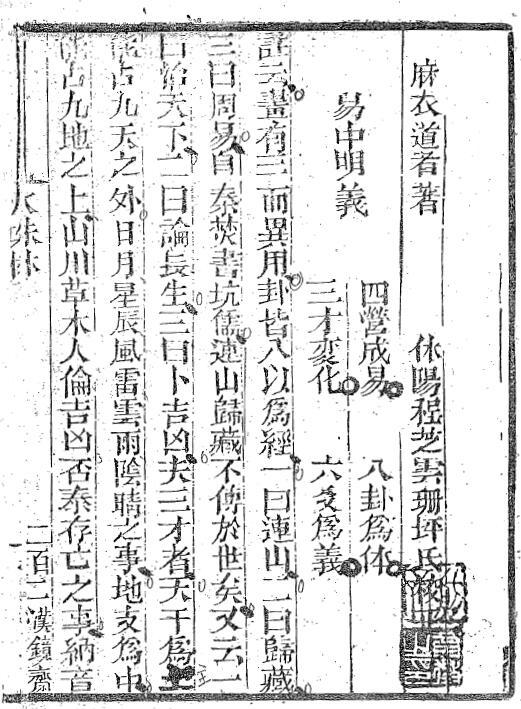 麻衣道者著　休陽程芝雲珊坪氏校
易中明義
四營成易　八卦為体
三才变化　六爻為義
註云畫有三而異用卦皆八以為經一曰連山二曰歸藏
三曰周易自秦焚書坑儒連山歸藏不傳於世矣又云一
曰治天下二曰論長生三曰卜吉凶夫三才者天干為上
能占九天之外日月星辰風雷雲雨陰晴之事地支為中
能占九地之上山川草木人倫吉凶否泰存亡之事納音
火珠林　二百二漢鏡齋